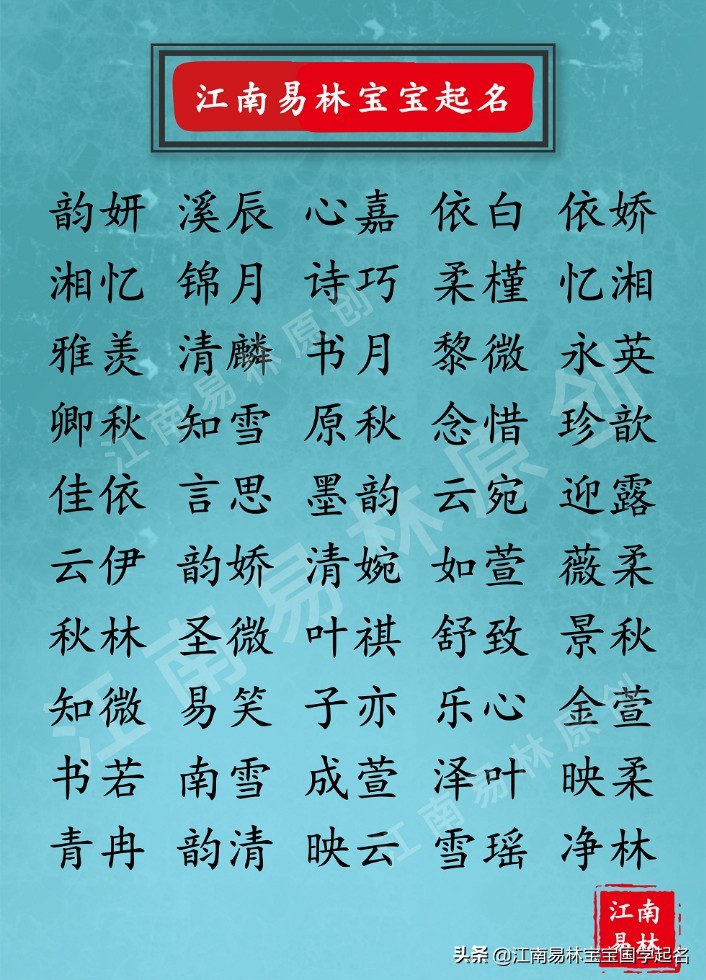 江南易林宝宝起名
韵妍 溪辰 心嘉 依白 依娇
湘忆 锦月 诗巧 柔槿 忆湘
雅羡 清麟 书月 黎微 永英
卿秋 知雪 原秋 念惜 珍歆
佳依 言思 墨韵 云宛 迎露
云伊 韵娇 清婉 如萱 薇柔
秋林 圣微 叶祺 舒致 景秋
知微 易笑 子亦 乐心 金萱
书若 南雪 成萱 泽叶 映柔
青冉 韵清 映云 雪瑶 净林
江南易林原创
江南易林原创
江南易林原创
江南
易林
头条 @江南易林宝宝国学起名